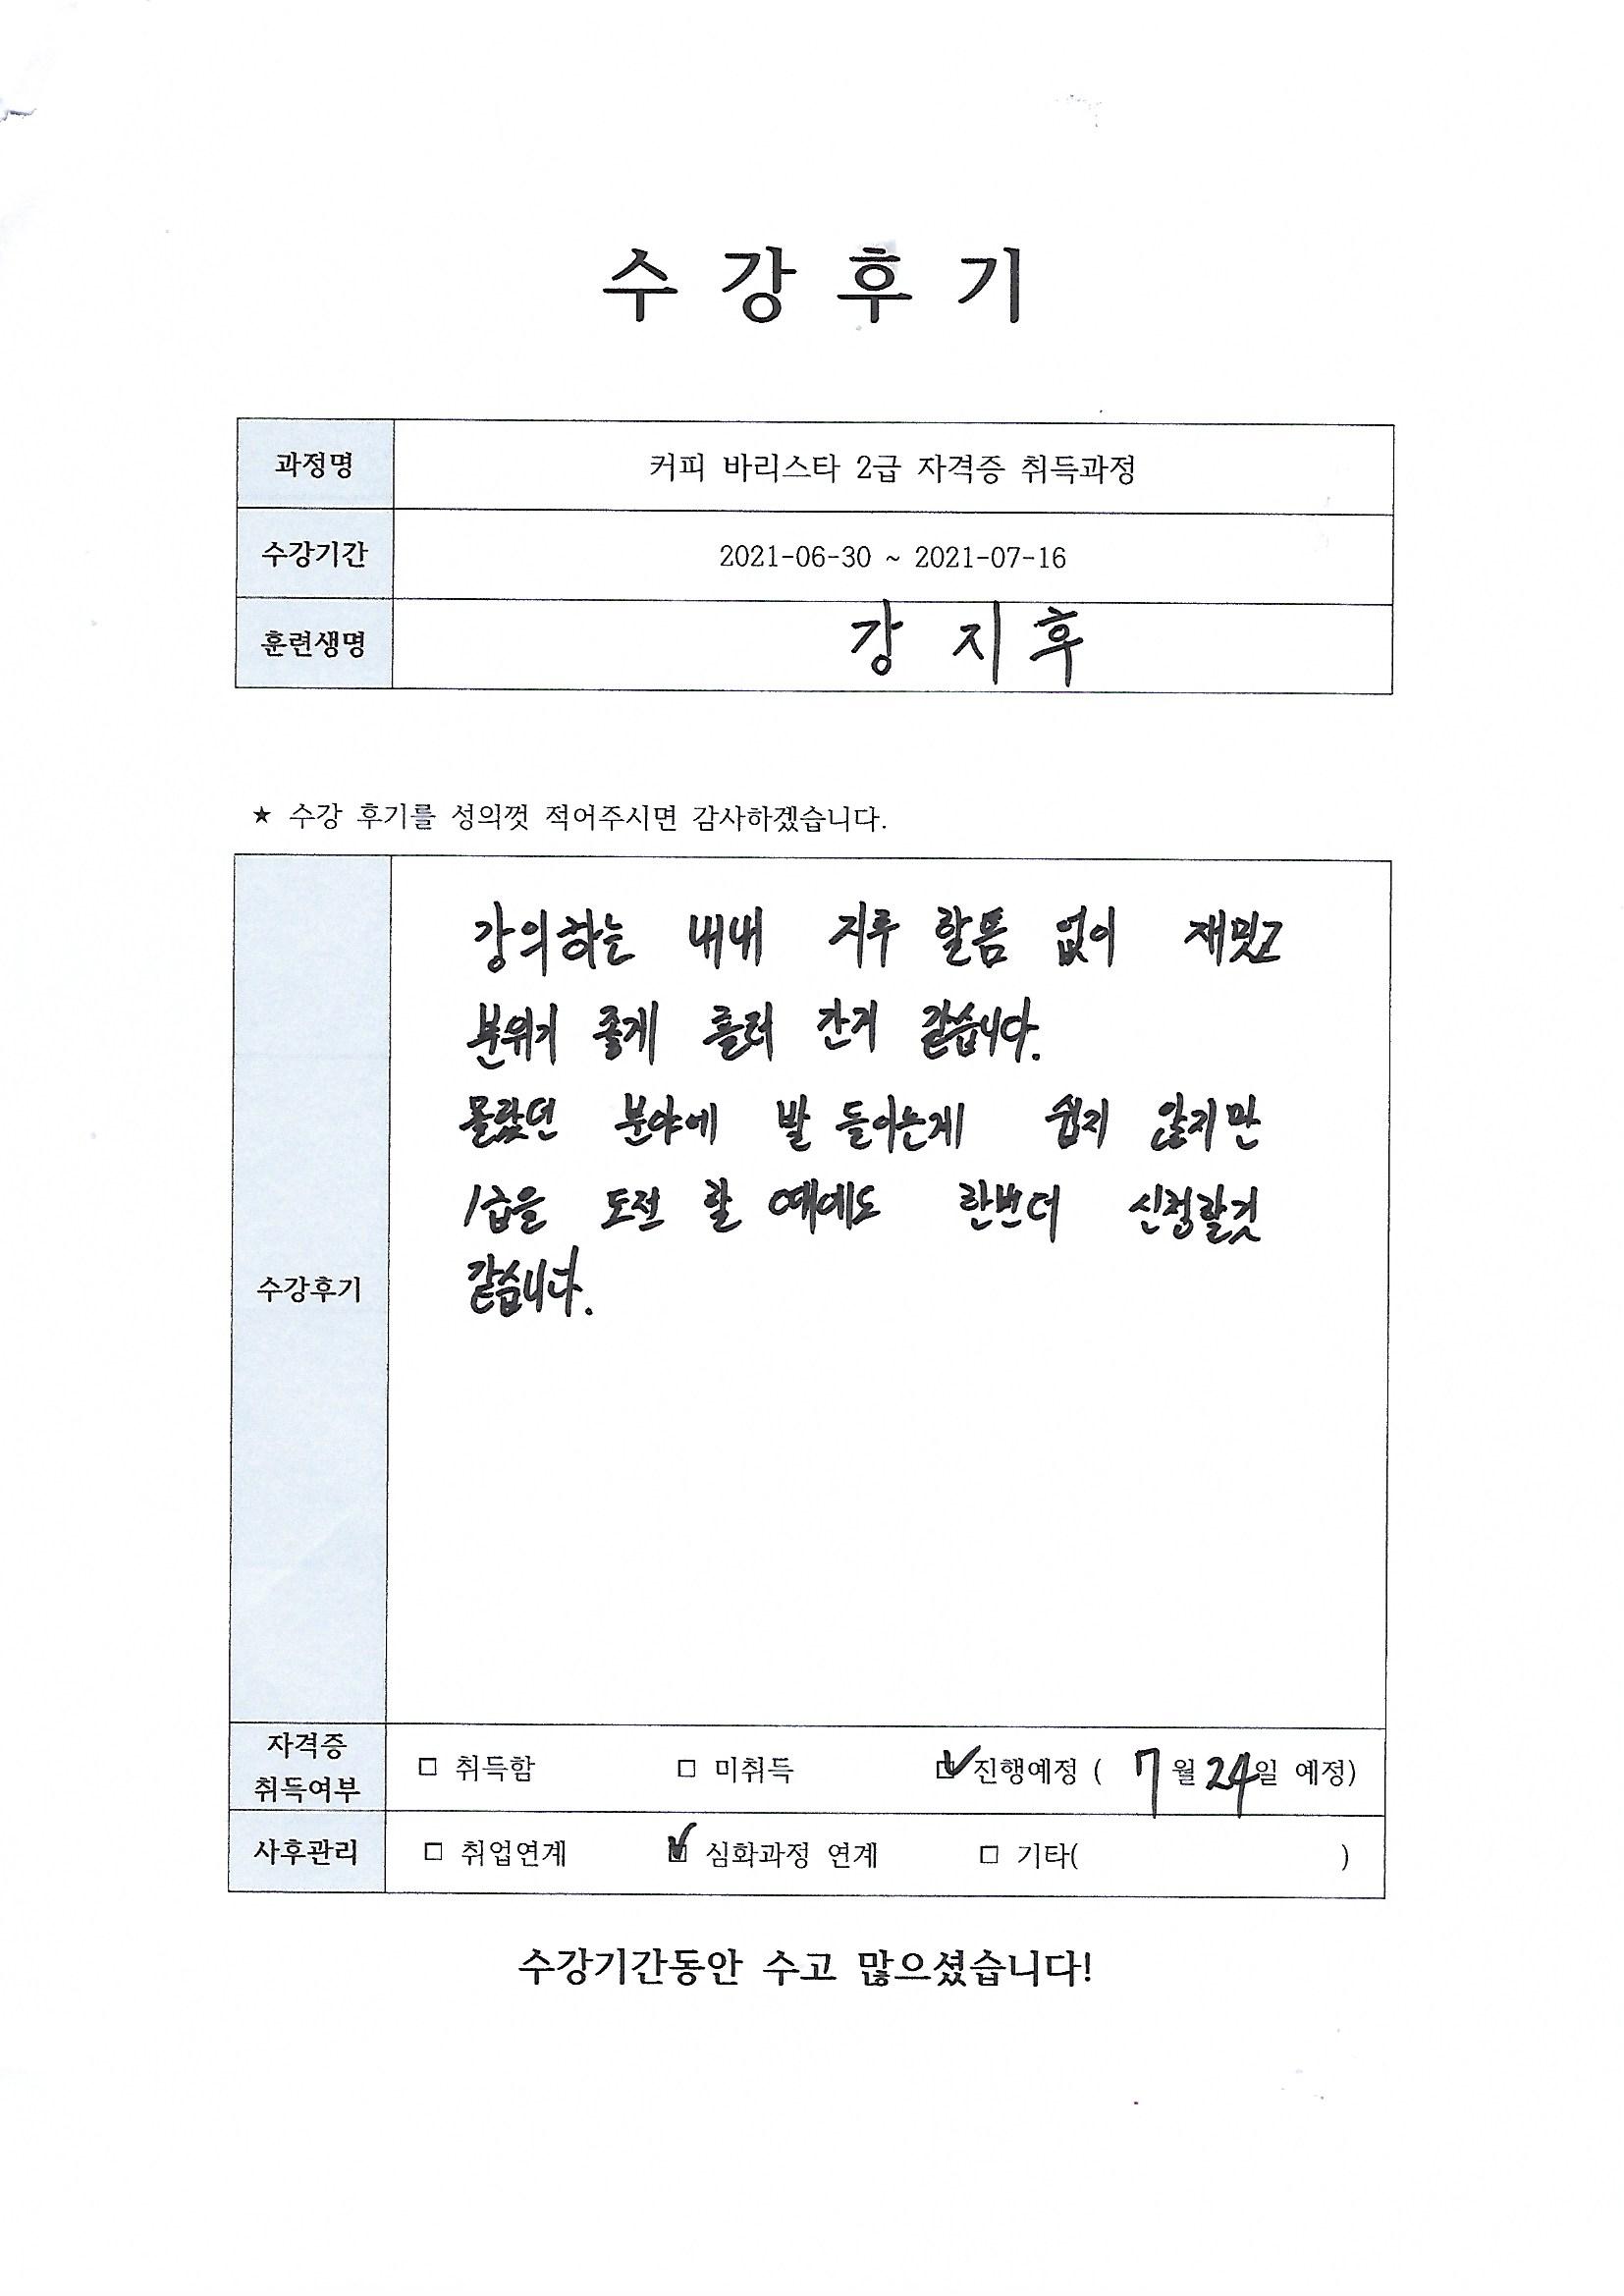 수 강 후 기
과정명 커피 바리스타 2급 자격증 취득과정
수강기간 2021-06-30 ~ 2021-07-16
훈련생명 강 지 후
★ 수강 후기를 성의껏 적어주시면 감사하겠습니다.
강의하는 내내 지루 할틈 없이 재밌고
분위기 좋게 흘러 간거 같습니다.
몰랐던 분야에 발 들이는게 쉽지 않지만
1급을 도전 할 때에도 한번더 신청할것
같습니다.
수강후기
자격증
취득여부
□ 취득함 □ 미취득 ☑ 진행예정 ( 7월 24일 예정)
사후관리 □ 취업연계 ☑ 심화과정 연계 □ 기타( )
수강기간동안 수고 많으셨습니다!